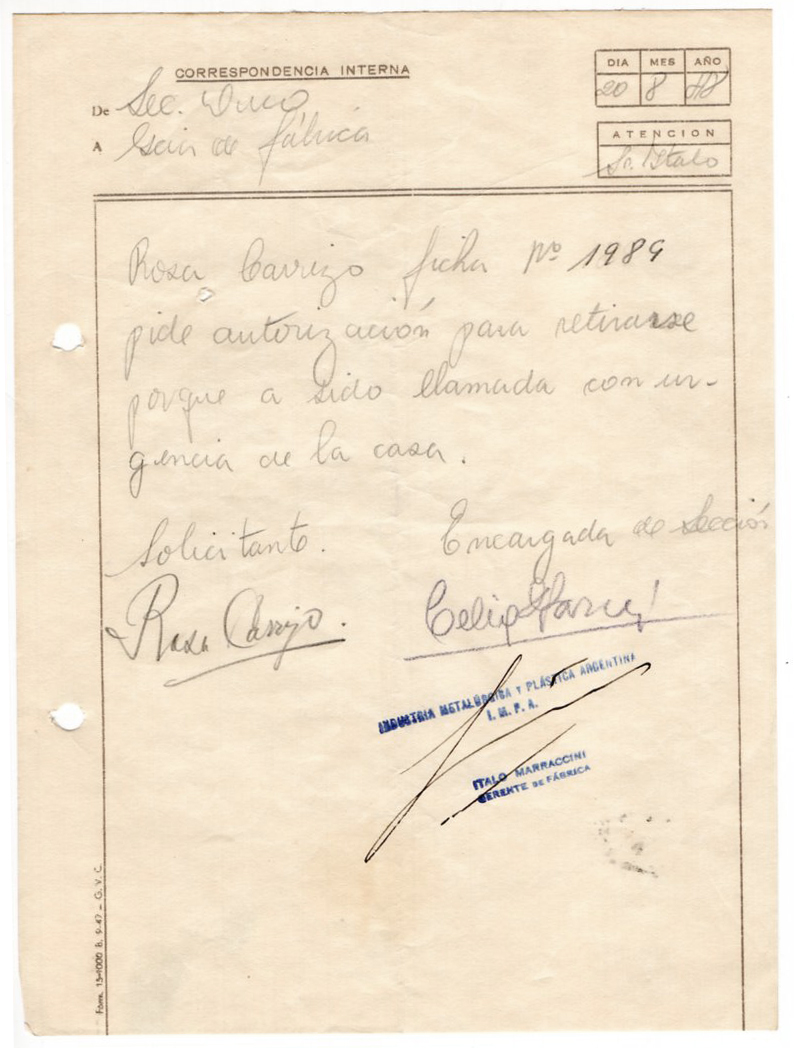 CORRESPONDENCIA INTERNA
DIA MES AÑO
20 8 48
De Sec.
A Gcia de fábrica
ATENCION
Sr. Italo
Rosa Carrizo ficha Nº 1989
pide autorización para retirarse
porque a sido llamada con ur-
gencia de la casa.
Solicitante. Encargada de Sección
Rosa Carrizo. Celia
INDUSTRIA METALÚRGICA Y PLÁSTICA ARGENTINA
I. M. P. A.
ITALO MARRACCINI
GERENTE DE FÁBRICA
Form. 13-1000 B. 9-47 - G. Y. C.